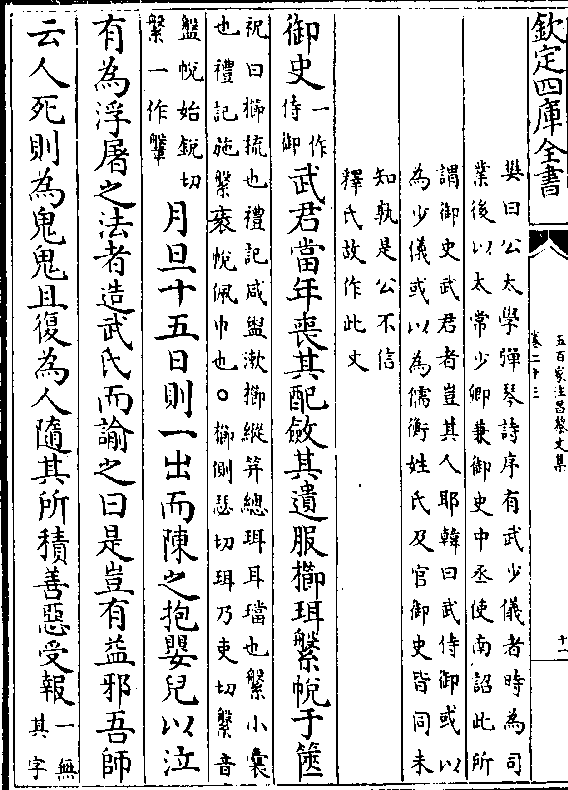 欽定四庫全書
五百家注昌黎文集
卷二十三
十一
樊曰公太學彈琴詩序有武少儀者時為司
業後以太常少卿兼御史中丞使南詔此所
謂御史武君者豈其人耶韓曰武侍御或以
為少儀或以為儒衡姓氏及官御史皆同未
知孰是公不信
釋氏故作此文
御史一作侍御武君當年喪其配斂其遺服櫛珥鞶帨于篋
祝曰櫛梳也禮記咸盥漱櫛縰笄總珥耳璫也鞶小囊
也禮記施鞶袠帨佩巾也○櫛側瑟切珥乃吏切鞶音
盤帨始銳切
鞶一作鞶
月旦十五日則一出而陳之抱嬰兒以泣
有為浮屠之法者造武氏而諭之曰是豈有益邪吾師
云人死則為鬼鬼且復為人隨其所積善惡受報一無其字